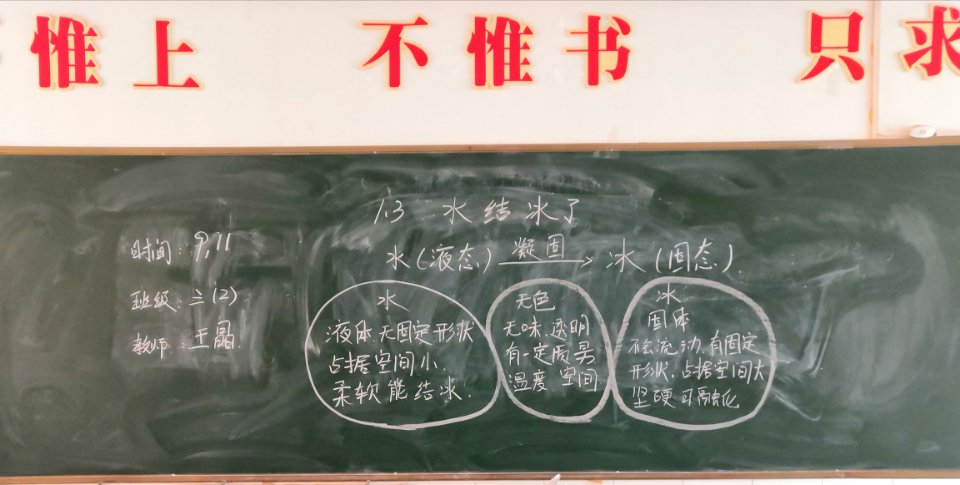 惟上 不惟书 只求
1.3 水结冰了
时间:9,11
水(液态)凝固→冰(固态).
班级:三(2)
教师:王晶.
水
液体.无固定形状
占据空间小.
柔软能结冰.
无色
无味,透明
有一定质量
温度 空间
冰
固体
不会流动,有固定
形状,占据空间大
坚硬 可融化